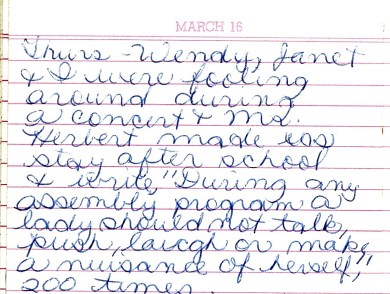 MARCH 16
Thurs - Wendy, Janet
& I were fooling
around during
a concert & Ms.
Herbert made us
stay after school
& write, "During any
assembly program a
lady should not talk,
push, laugh or make
a nuisance of herself,"
200 times.